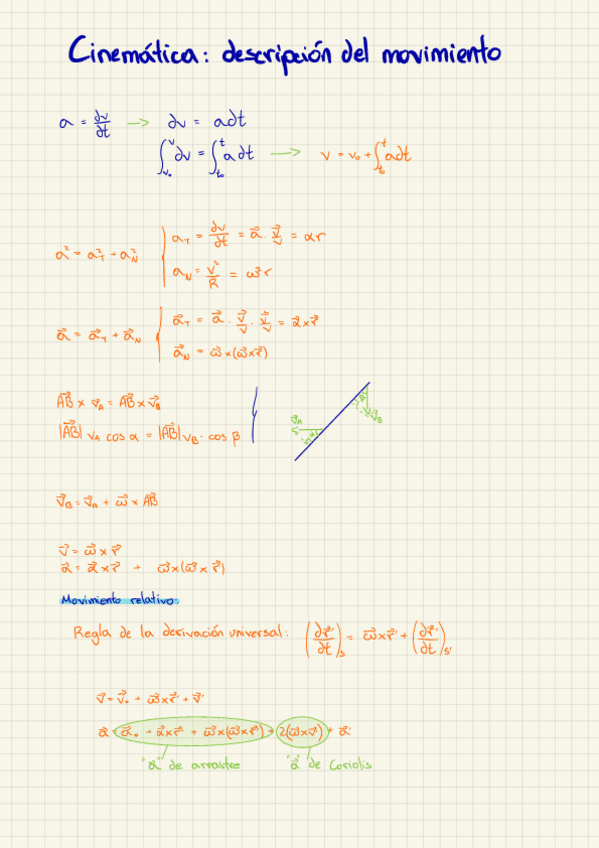 Cinemática: descripción del movimiento
a = dv/dt → dv = adt
∫_{v₀}^{v} dv = ∫_{t₀}^{t} adt → v = v₀ + ∫_{t₀}^{t} adt
a² = a²_T + a²_N { a_T = dv/dt = a⃗ · v⃗/v = αr
a_N = v²/R = ω²r
a⃗ = a⃗_T + a⃗_N { a⃗_T = a⃗ · v⃗/v · v⃗/v = α⃗ × r⃗
a⃗_N = ω⃗ × (ω⃗ × r⃗)
AB⃗ × v⃗_A = AB⃗ × v⃗_B
|AB⃗| v_A cos α = |AB⃗| v_B · cos β
v⃗_A
v⃗_B
v⃗_B = v⃗_A + ω⃗ × AB⃗
v⃗ = ω⃗ × r⃗
a⃗ = α⃗ × r⃗ + ω⃗ × (ω⃗ × r⃗)
Movimiento relativo:
Regla de la derivación universal: (dr⃗'/dt)_S = ω⃗ × r⃗' + (dr⃗'/dt)_S'
v⃗ = v⃗₀ + ω⃗ × r⃗' + v⃗'
a⃗ = a⃗₀ + α⃗ × r⃗' + ω⃗ × (ω⃗ × r⃗') + 2(ω⃗ × v⃗') + a⃗'
"a⃗" de arrastre "a⃗" de Coriolis